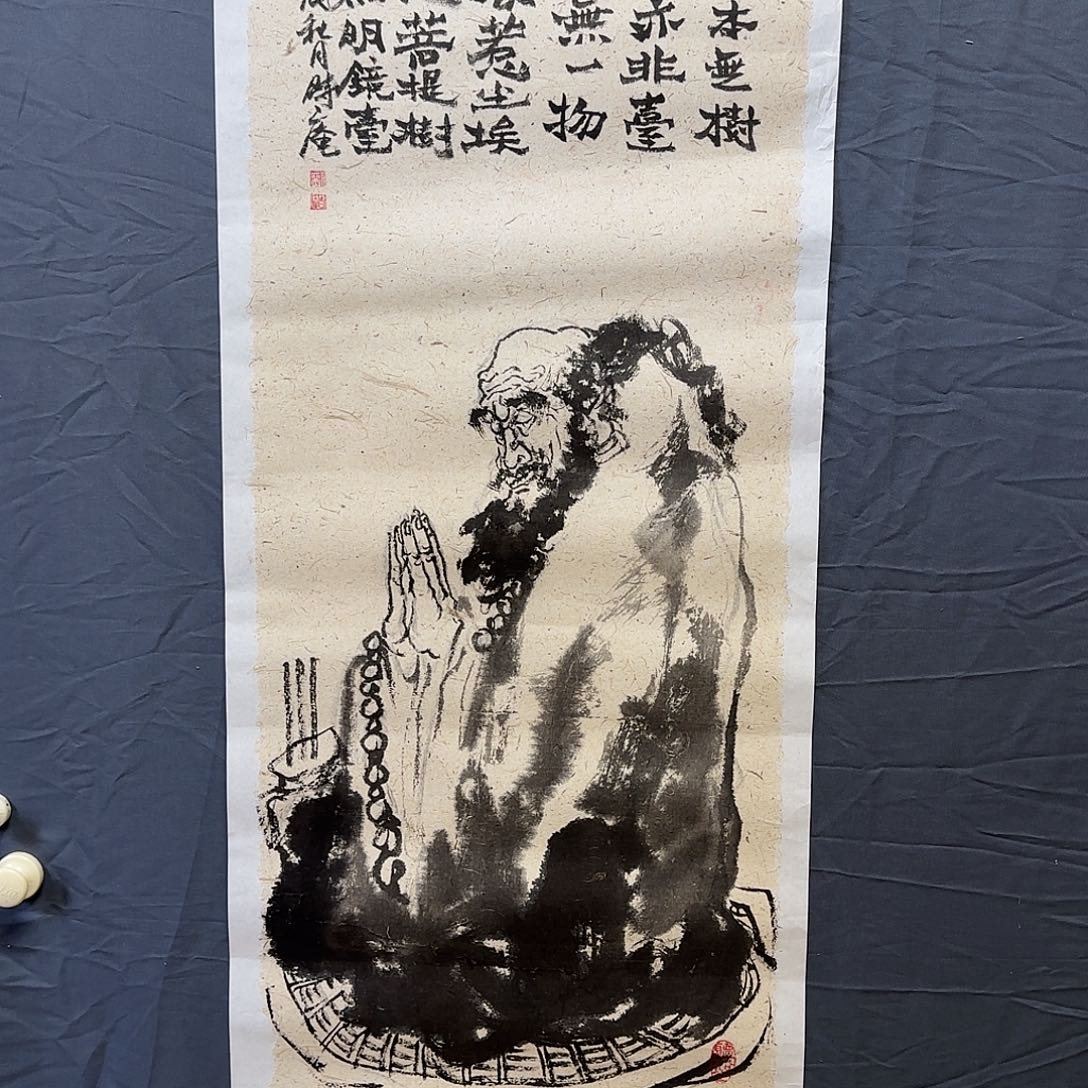 本無樹
亦非臺
無一物
惹尘埃
菩提樹
明鏡臺
秋月時庵